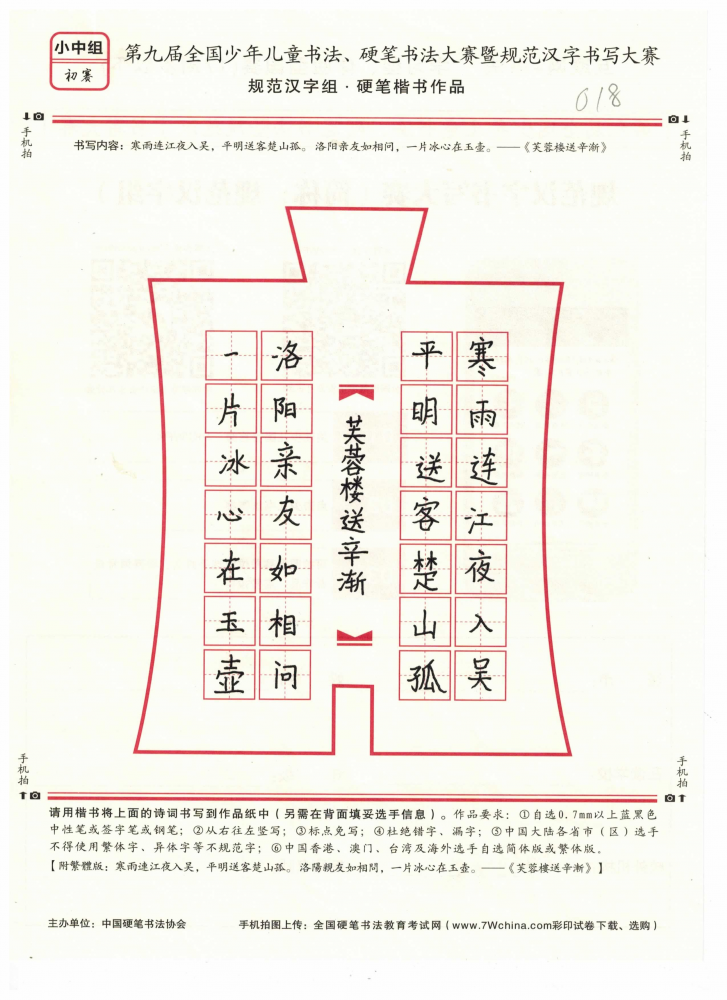 小中组
初赛
第九届全国少年儿童书法、硬笔书法大赛暨规范汉字书写大赛
规范汉字组·硬笔楷书作品
018
手机拍
手机拍
书写内容：寒雨连江夜入吴，平明送客楚山孤。洛阳亲友如相问，一片冰心在玉壶。——《芙蓉楼送辛渐》
寒雨连江夜入吴
平明送客楚山孤
芙蓉楼送辛渐
洛阳亲友如相问
一片冰心在玉壶
手机拍
手机拍
请用楷书将上面的诗词书写到作品纸中（另需在背面填妥选手信息）。作品要求：①自选0.7mm以上蓝黑色
中性笔或签字笔或钢笔；②从右往左竖写；③标点免写；④杜绝错字、漏字；⑤中国大陆各省市（区）选手
不得使用繁体字、异体字等不规范字；⑥中国香港、澳门、台湾及海外选手自选简体版或繁体版。
【附繁體版：寒雨連江夜入吳，平明送客楚山孤。洛陽親友如相問，一片冰心在玉壺。——《芙蓉樓送辛漸》】
主办单位：中国硬笔书法协会
手机拍图上传：全国硬笔书法教育考试网（www.7Wchina.com彩印试卷下载、选购）